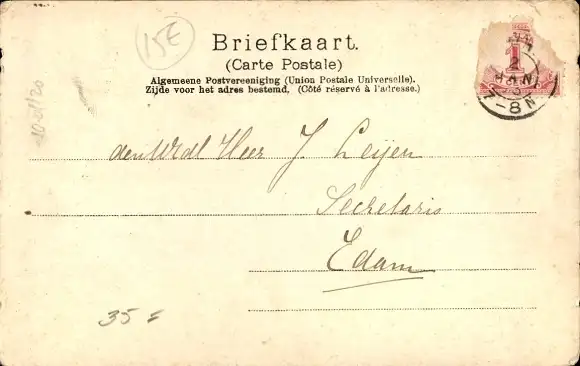 15E
Briefkaart.
(Carte Postale)
Algemeene Postvereeniging (Union Postale Universelle).
Zijde voor het adres bestemd. (Côté réservé à l'adresse.)
1
7-8N
den WEdl Heer J. Leijen
Secretaris
Edam
35=